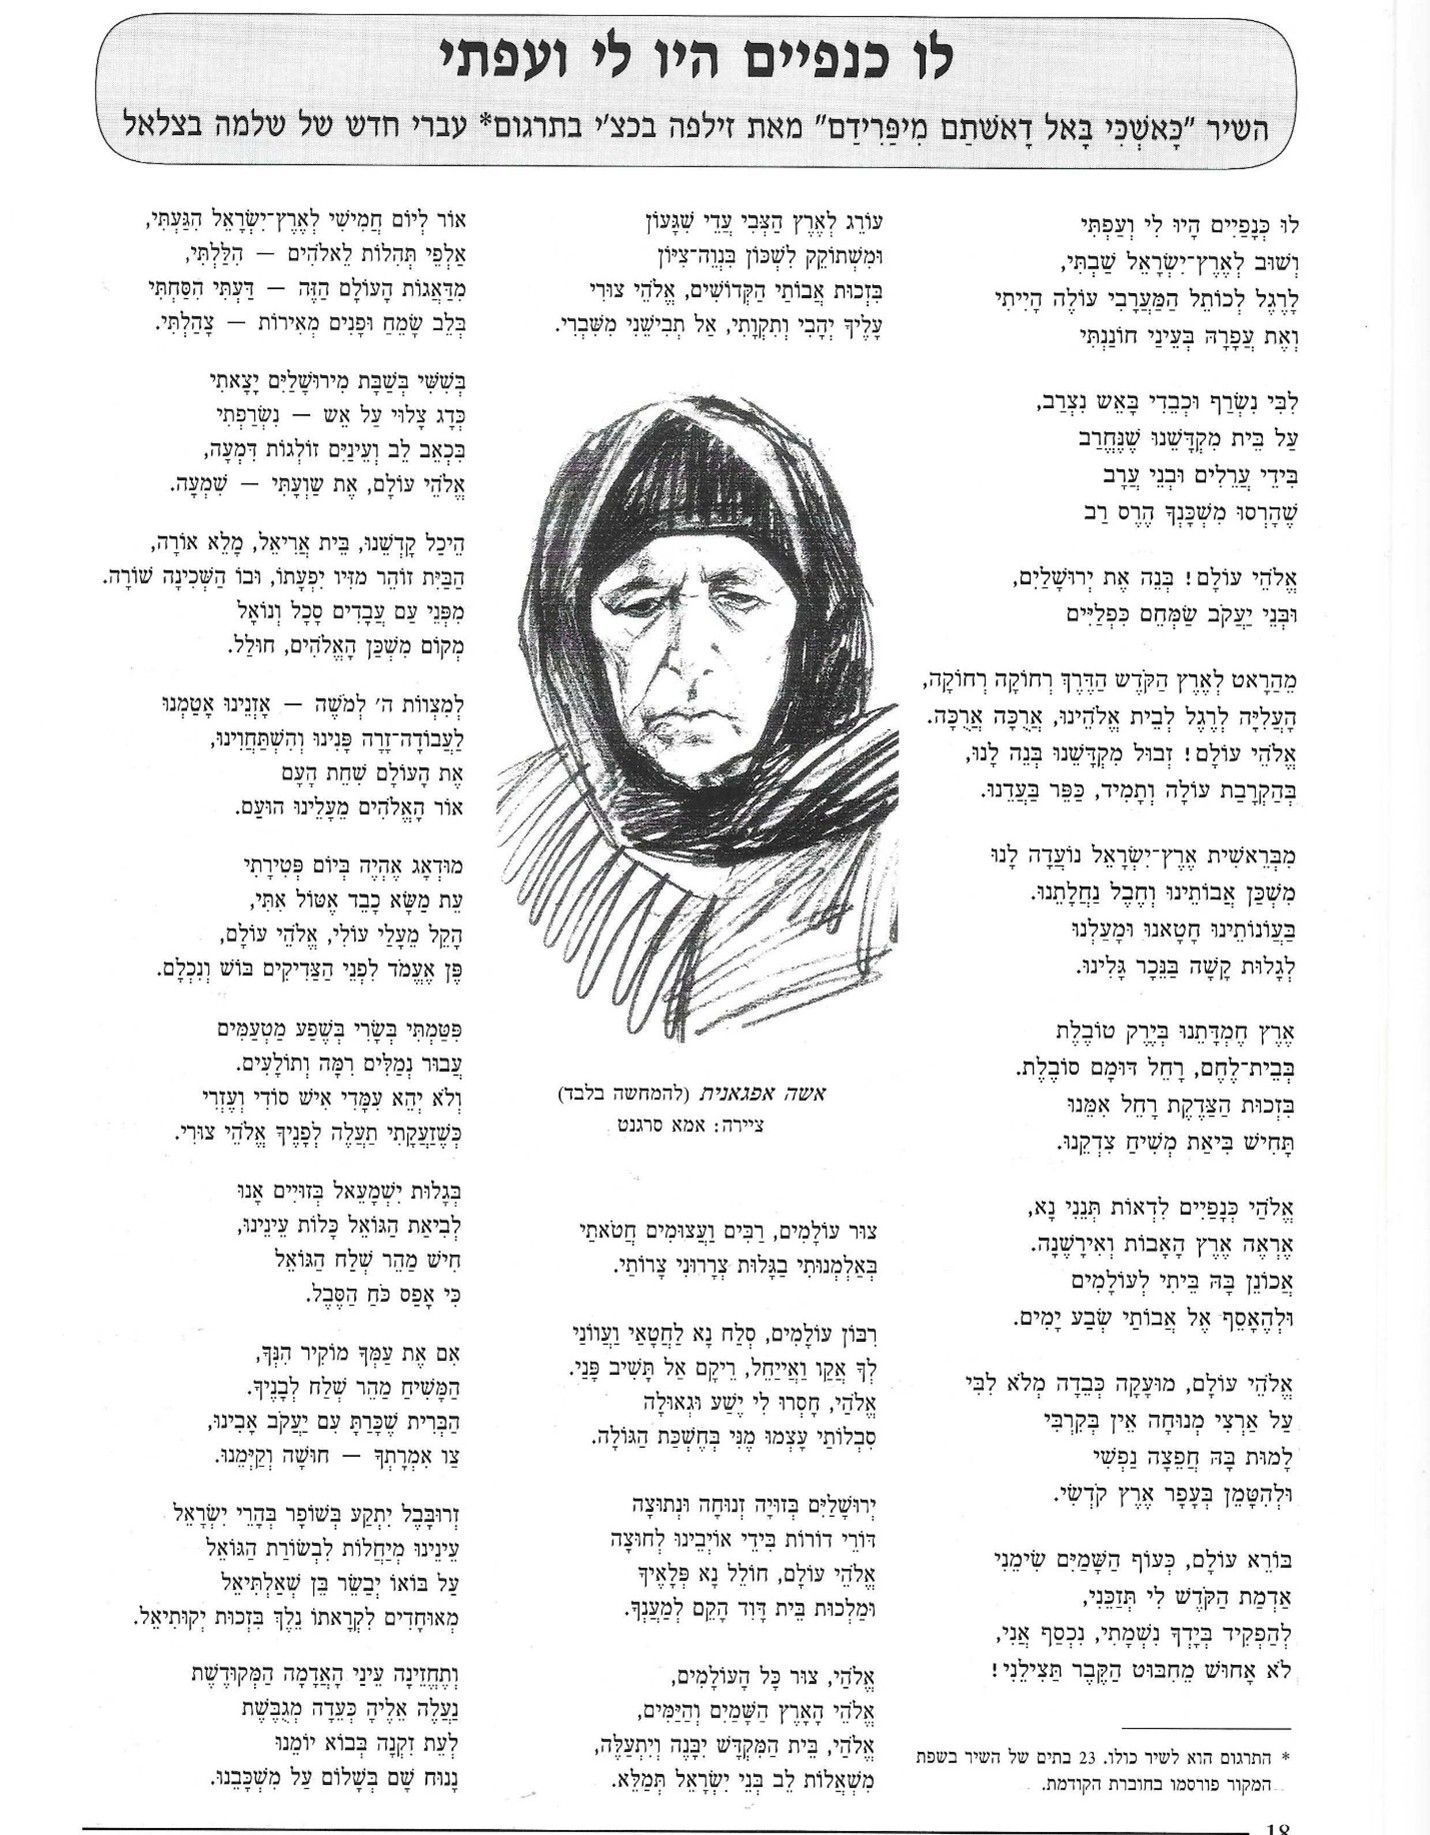 לו כנפיים היו לי ועפתי
השיר "כָּאשְׁכִּי בָּאל דָאשׁתַם מִיפַּרִידַם" מאת זילפה בכצ'י בתרגום* עברי חדש של שלמה בצלאל
לוּ כְּנָפַיִים הָיוּ לִי וְעַפְתִּי
וְשׁוּב לְאֶרֶץ־יִשְׂרָאֵל שַׁבְתִּי,
לָרֶגֶל לְכוֹתֶל הַמַּעֲרָבִי עוֹלֶה הָיִיתִי
וְאֶת עֲפָרָהּ בְּעֵינַי חוֹנַנְתִּי
לִבִּי נִשְׂרַף וּכְבֵדִי בָּאֵשׁ נִצְרַב,
עַל בֵּית מִקְדָּשֵׁנוּ שֶׁנֶּחֱרַב
בִּידֵי עֲרֵלִים וּבְנֵי עֲרָב
שֶׁהָרְסוּ מִשְׁכָּנְךָ הֶרֶס רַב
אֱלֹהֵי עוֹלָם! בְּנֵה אֶת יְרוּשָׁלַיִם,
וּבְנֵי יַעֲקֹב שַׂמְּחֵם כִּפְלַיִּים
מֵהֵרָאט לְאֶרֶץ הַקֹּדֶשׁ הַדֶּרֶךְ רְחוֹקָה רְחוֹקָה,
הָעֲלִיָּה לְרֶגֶל לְבֵית אֱלֹהֵינוּ, אֲרֻכָּה אֲרֻכָּה.
אֱלֹהֵי עוֹלָם! זְבוּל מִקְדָּשֵׁנוּ בְּנֵה לָנוּ,
בְּהַקְרָבַת עוֹלָה וְתָמִיד, כַּפֵּר בַּעֲדֵנוּ.
מִבְּרֵאשִׁית אֶרֶץ־יִשְׂרָאֵל נוֹעֲדָה לָנוּ
מִשְׁכַּן אֲבוֹתֵינוּ וְחֶבֶל נַחֲלָתֵנוּ.
בַּעֲווֹנוֹתֵינוּ חָטָאנוּ וּמָעַלְנוּ
לְגָלוּת קָשָׁה בַּנֵּכָר גָּלִינוּ.
אֶרֶץ חֶמְדָּתֵנוּ בְּיֶרֶק טוֹבֶלֶת
בְּבֵית־לֶחֶם, רָחֵל דּוּמָם סוֹבֶלֶת.
בִּזְכוּת הַצַּדֶּקֶת רָחֵל אִמֵּנוּ
תָּחִישׁ בִּיאַת מְשִׁיחַ צִדְקֵנוּ.
אֱלֹהַי כְּנָפַיִים לִדְאוֹת תְּנֵנִי נָא,
אֶרְאֶה אֶרֶץ הָאָבוֹת וְאִירָשֶׁנָּה.
אֲכוֹנֵן בָּהּ בֵּיתִי לְעוֹלָמִים
וּלְהֵאָסֵף אֶל אֲבוֹתַי שְׂבַע יָמִים.
אֱלֹהֵי עוֹלָם, מוּעָקָה כְּבֵדָה מְלֹא לִבִּי
עַל אַרְצִי מְנוּחָה אֵין בְּקִרְבִּי
לָמוּת בָּהּ חֲפֵצָה נַפְשִׁי
וּלְהִטָּמֵן בְּעָפָר אֶרֶץ קֹדְשִׁי.
בּוֹרֵא עוֹלָם, כְּעוֹף הַשָּׁמַיִם שִׂימֵנִי
אַדְמַת הַקֹּדֶשׁ לִי תְּזַכֵּנִי,
לְהַפְקִיד בְּיָדְךָ נִשְׁמָתִי, נִכְסָף אֲנִי,
לֹא אָחוּשׁ מֵחִבּוּט הַקֶּבֶר תַּצִּילֵנִי!
* התרגום הוא לשיר כולו. 23 בתים של השיר בשפת
המקור פורסמו בחוברת הקודמת.
עוֹרֵג לְאֶרֶץ הַצְּבִי עֲדֵי שִׁגָּעוֹן
וּמִשְׁתּוֹקֵק לִשְׁכּוֹן בִּנְוֵה־צִיּוֹן
בִּזְכוּת אֲבוֹתַי הַקְּדוֹשִׁים, אֱלֹהֵי צוּרִי
עָלֶיךָ יְהָבִי וְתִקְוָתִי, אַל תְּבִישֵׁנִי מִשִּׂבְרִי.
אשה אפגאנית (להמחשה בלבד)
ציירה: אמא סרגנט
צוּר עוֹלָמִים, רַבִּים וַעֲצוּמִים חֲטֹאתַי
בְּאַלְמְנוּתִי בַגָּלוּת צְרָרוּנִי צָרוֹתַי.
רִבּוֹן עוֹלָמִים, סְלַח נָא לַחֲטָאַי וַעֲווֹנַי
לְךָ אֲקַו וַאֲיַיחֵל, רֵיקָם אַל תָּשִׁיב פָּנַי.
אֱלֹהַי, חָסְרוּ לִי יֶשַׁע וּגְאוּלָה
סִבְלוֹתַי עָצְמוּ מֶנִּי בְּחֶשְׁכַּת הַגּוֹלָה.
יְרוּשָׁלַיִם בְּזוּיָה זְנוּחָה וּנְתוּצָה
דּוֹרֵי דוֹרוֹת בִּידֵי אוֹיְבֵינוּ לְחוּצָה
אֱלֹהֵי עוֹלָם, חוֹלֵל נָא פְּלָאֶיךָ
וּמַלְכוּת בֵּית דָּוִד הָקֵם לְמַעֲנֶךָ.
אֱלֹהַי, צוּר כָּל הָעוֹלָמִים,
אֱלֹהֵי הָאָרֶץ הַשָּׁמַיִם וְהַיַּמִּים,
אֱלֹהַי, בֵּית הַמִּקְדָּשׁ יִבָּנֶה וְיִתְעַלֶּה,
מִשְׁאֲלוֹת לֵב בְּנֵי יִשְׂרָאֵל תְּמַלֵּא.
אוֹר לְיוֹם חֲמִישִׁי לְאֶרֶץ־יִשְׂרָאֵל הִגַּעְתִּי,
אַלְפֵי תְּהִלּוֹת לֵאלֹהִים — הִלַּלְתִּי,
מִדַּאֲגוֹת הָעוֹלָם הַזֶּה — דַּעְתִּי הִסַּחְתִּי
בְּלֵב שָׂמֵחַ וּפָנִים מְאִירוֹת — צָהַלְתִּי.
בְּשִׁשִּׁי בְּשַׁבָּת מִירוּשָׁלַיִם יָצָאתִי
כְּדָג צָלוּי עַל אֵשׁ — נִשְׂרַפְתִּי
בִּכְאֵב לֵב וְעֵינַיִם זוֹלְגוֹת דִּמְעָה,
אֱלֹהֵי עוֹלָם, אֶת שַׁוְעָתִי — שִׁמְעָה.
הֵיכַל קָדְשֵׁנוּ, בֵּית אֲרִיאֵל, מָלֵא אוֹרָה,
הַבַּיִת זוֹהֵר מִזִּיו יִפְעָתוֹ, וּבוֹ הַשְּׁכִינָה שׁוֹרָה.
מִפְּנֵי עַם עֲבָדִים סָכָל וְנוֹאָל
מְקוֹם מִשְׁכַּן הָאֱלֹהִים, חוּלַל.
לְמִצְווֹת ה' לְמֹשֶׁה — אָזְנֵינוּ אָטַמְנוּ
לַעֲבוֹדָה־זָרָה פָּנִינוּ וְהִשְׁתַּחֲוִינוּ,
אֶת הָעוֹלָם שִׁחֵת הָעָם
אוֹר הָאֱלֹהִים מֵעָלֵינוּ הוּעַם.
מוּדְאָג אֶהְיֶה בְּיוֹם פְּטִירָתִי
עֵת מַשָּׂא כָבֵד אֶטּוֹל אִתִּי,
הָקֵל מֵעָלַי עוּלִי, אֱלֹהֵי עוֹלָם,
פֶּן אֶעֱמֹד לִפְנֵי הַצַּדִּיקִים בּוֹשׁ וְנִכְלָם.
פִּטַּמְתִּי בְּשָׂרִי בְּשֶׁפַע מַטְעַמִּים
עֲבוּר נְמַלִּים רִמָּה וְתוֹלָעִים.
וְלֹא יְהֵא עִמָּדִי אִישׁ סוֹדִי וְעֶזְרִי
כְּשֶׁזַּעֲקָתִי תַּעֲלֶה לְפָנֶיךָ אֱלֹהֵי צוּרִי.
בְּגָלוּת יִשְׁמָעֵאל בְּזוּיִים אָנוּ
לְבִיאַת הַגּוֹאֵל כָּלוֹת עֵינֵינוּ,
חִישׁ מַהֵר שְׁלַח הַגּוֹאֵל
כִּי אָפַס כֹּחַ הַסֵּבֶל.
אִם אֶת עַמְּךָ מוֹקִיר הִנְּךָ,
הַמָּשִׁיחַ מַהֵר שְׁלַח לְבָנֶיךָ.
הַבְּרִית שֶׁכָּרַתָּ עִם יַעֲקֹב אָבִינוּ,
צַו אִמְרָתְךָ — חוּשָׁה וְקַיְּמֵנוּ.
זְרוּבָּבֶל יִתְקַע בְּשׁוֹפָר בְּהָרֵי יִשְׂרָאֵל
עֵינֵינוּ מְיַחֲלוֹת לִבְשׂוֹרַת הַגּוֹאֵל
עַל בּוֹאוֹ יְבַשֵּׂר בֵּן שְׁאַלְתִּיאֵל
מְאוּחָדִים לִקְרָאתוֹ נֵלֵךְ בִּזְכוּת יְקוּתִיאֵל.
וְתֶחֱזֶינָה עֵינַי הָאֲדָמָה הַמְּקוּדֶּשֶׁת
נַעֲלֶה אֵלֶיהָ כְּעֵדָה מְגֻבֶּשֶׁת
לְעֵת זִקְנָה בְּבוֹא יוֹמֵנוּ
נָנוּחַ שָׁם בְּשָׁלוֹם עַל מִשְׁכָּבֵנוּ.
18